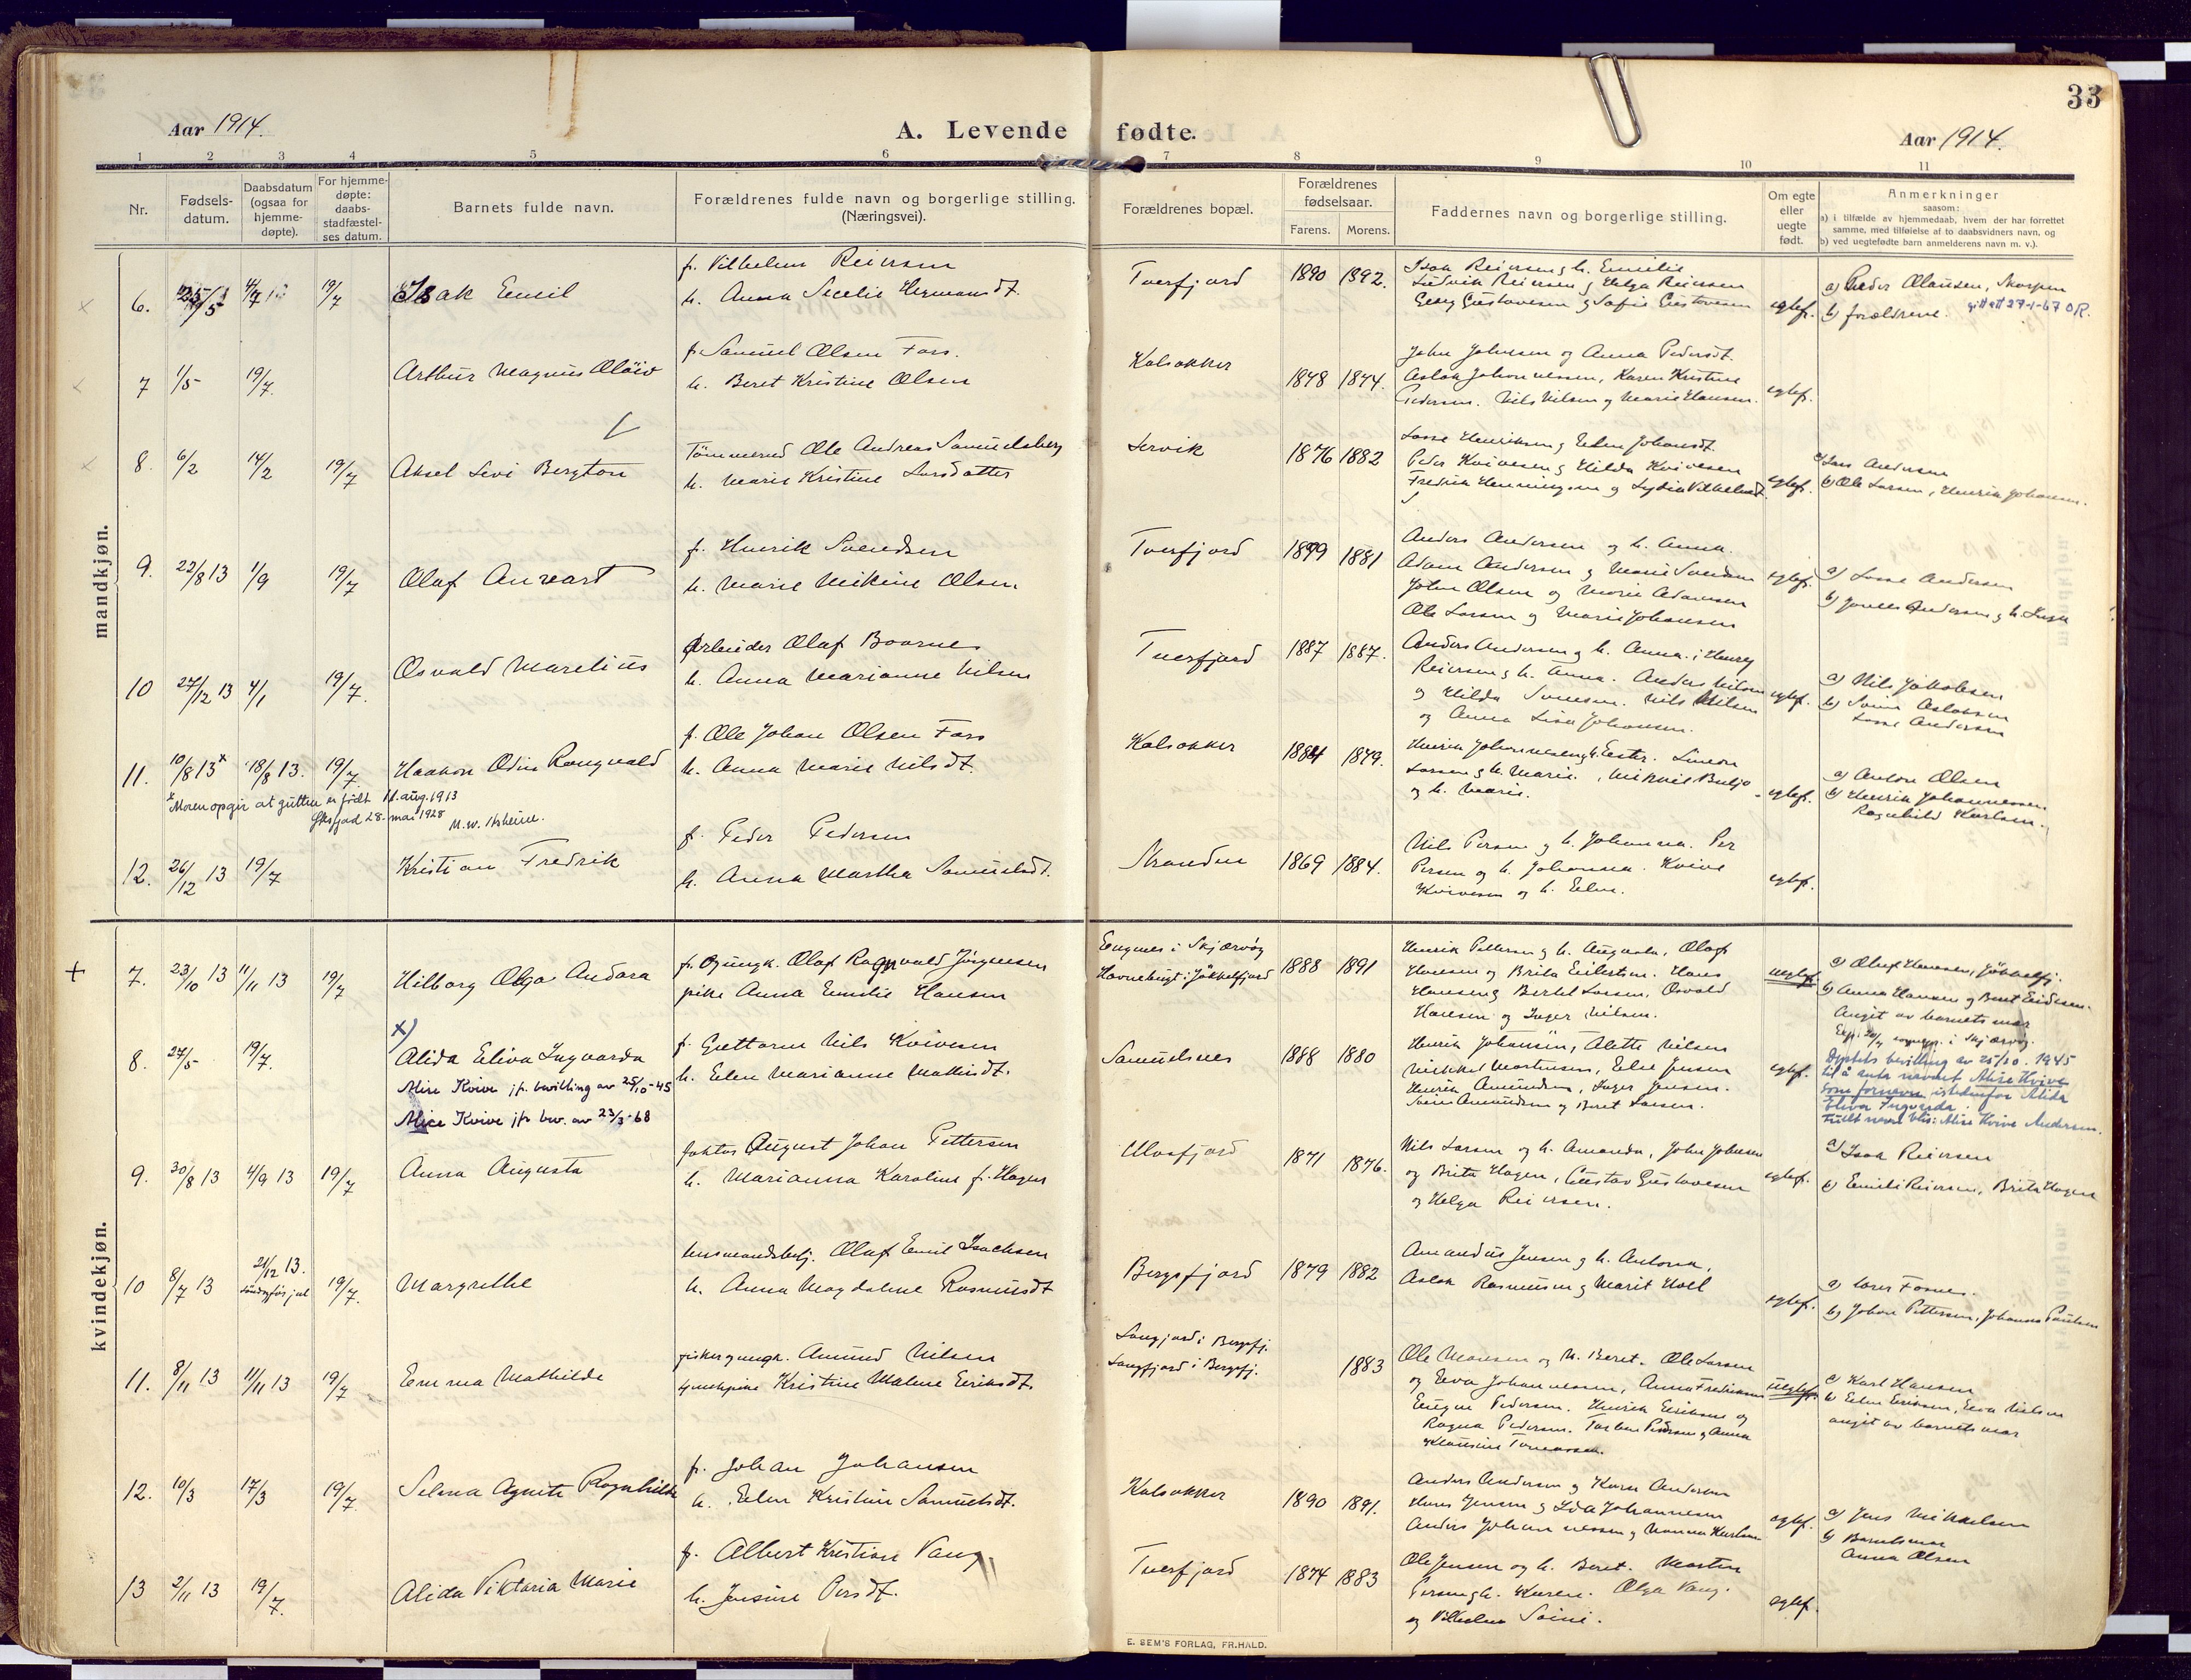 33
Aar 1914.
A. Levende fødte.
Aar 1914.
1 2 3 4 5 6 7 8 9 10 11
Nr.
Fødsels-
datum.
Daabsdatum
(ogsaa for
hjemme-
døpte).
For hjemme-
døpte:
daabs-
stadfæstel-
ses datum.
Barnets fulde navn.
Forældrenes fulde navn og borgerlige stilling.
(Næringsvei).
Forældrenes bopæl.
Forældrenes
fødselsaar.
Farens. Morens.
Faddernes navn og borgerlige stilling.
Om egte
eller
uegte
født.
Anmerkninger
saasom:
a) i tilfælde av hjemmedaab, hvem der har forrettet
samme, med tilføielse af to daabsvidners navn, og
b) ved uegtefødte barn anmelderens navn m. v.).
mandkjøn.
6. 19/7 Isak Emil
f. Vilhelm Reiersen
h. Anna Secelie Hermansdt.
Tverfjord 1890 1892.
Isak Reiersen g h. Emilie
Ludvik Reiersen g Helga Reiersen
Georg Gustavesen g Sofie Gustavesen
egtef.
a) Peder Olausen, Skorpen
b) forældrene. gitt att 27-1-67 OR.
7 1/5 19/7. Arthur Magnus Oläiv
f. Samuel Olsen Fors.
h. Beret Kristine Olsen
Kalsakker 1878 1874.
John Johnsen og Anna Pedersdt.
Aslak Johannessen, Karen Kristine
Pedersen. Nils Nilsen g Marie Hansen.
egtef.
8. 6/2 14/2 19/7 Aksel Levi Bergton
Tömmermd Ole Andreas Samuelsberg
h. Marie Kristine Larsdatter
Lervik 1876 1882
Lasse Henriksen g Elen Johansdt.
Peder Kvivesen g Hilda Kvivesen
Fredrik Henningsen g Lydia Vilhelmsdt.
egtef.
a) Lars Andersen
b) Ole Larsen, Henrik Johansen.
9. 22/8 13 1/9 19/7 Olaf Anvart
f. Henrik Svendsen
h. Marie Mikine Olsen
Tverfjord 1879 1881
Anders Andersen og h. Anna.
Adam Andersen g Marie Svendsen
John Olsen og Marie Adamsen
Ole Larsen g Marie Johansen
egtef.
a) Lasse Andersen
10 27/12 13 4/1 19/7. Osvald Marelius
Arbeider Olaf Boarnes
h. Anna Marianne Nilsen
Tverfjord 1887 1887.
Anders Andersen g h. Anna. Henry
Reiersen g h. Anna. Anders Nilsen
og Hilda Svensen. Nils Nilsen
og Anna Lisa Johansen.
egtef.
a) Nils Jakobsen
b) Soine Aslaksen
Lasse Andersen
11. 10/8 13* 18/8 13. 19/7. Haakon Odin Rangvald
* Moren opgir at gutten er født 11. aug. 1913
Øksfjord 28. mai 1928
f. Ole Johan Olsen Fors
h. Anna Marie Nilsdt.
Kalsakker 1884 1879.
Henrik Johannesen g h. Ester. Simon
Larsen g h. Marie. Mikkel Buljo
og h. Marie.
egtef.
a) Anton Olsen
b) Henrik Johannessen
Ragnhild Karlsen.
12. 26/12 13 19/7 Kristian Fredrik
f. Peder Pedersen
h. Anna Martha Samuelsdt.
Stranden 1869 1884.
Nils Persen g h. Johanna. Per
Persen og h. Johanna. Kvive
Kvivesen og h. Elen.
egtef.
kvindekjøn.
+ 7. 23/10 13 11/11 13 19/7 Hilborg Olga Andora
f. g ungk. Olaf Ragnvald Jörgensen
pike Anna Emilie Hansen
Engenes i Skjærvøy
Havnebugt i Jökkelfjord 1888 1891
Henrik Pettersen g h. Augusta, Olaf
Hansen og Brita Eilertsen. Hans
Hansen g Bertel Larsen, Osvald
Hansen og Inger Nilsen.
uegtef.
a) Oluf Hansen, Jökkelfj.
b) Anna Hansen g Beret Eriksen.
Angit av barnets mor
8. 27/5 19/7. x)
Alida Eliva Ingvarda
Alise Kvive jfr. bevilling av 25/10-45
Alice Kvive jfr. bev. av 23/3-68
f. Guttorm Nils Kvivesen
h. Elen Marianne Mathisdt.
Samuelsnes 1888 1880
Henrik Johansen, Alette Nilsen
Mikkel Martinsen, Elen Jensen
Henrik Amundsen, Inger Jensen.
Soine Amundsen g Beret Larsen.
egtef.
Dptets bevilling av 25/10. 1945
til å anta navnet Alise Kvive
som fornavn istedenfor Alida
Eliva Ingvarda.
Fullt navn blir: Alise Kvive Andersen.
9. 30/8 13 4/9 13 19/7 Anna Augusta
faktor August Johan Pettersen
h. Marianna Karoline f. Hagen
Ulvsfjord 1871 1876.
Nils Larsen og h. Amanda, John Johnsen
og Brita Hagen, Gustav Gustavesen
og Helga Reiersen.
egtef.
a) Isak Reiersen
b) Emilie Reiersen, Brita Hagen
10 8/7 13 21/12 13. 19/7. Margrethe
søndag før jul
husmandsbfj. Olaf Emil Isachsen
h. Anna Magdalene Rasmusdt
Bergsfjord 1879 1882
Amandus Jensen g h. Antona,
Aslak Rasmussen g Marit Hoel
egtef.
a) Lars Fosnes.
b) Johan Pettersen, Johanna Paulsen
11. 8/11 13 11/11 13 19/7 Emma Mathilde
fisker g ungk. Amund Nilsen
tjenestepike Kristine Malene Eeriksdt.
Langfjord i Bergsfj.
Langfjord i Bergsfj. 1883
Ole Monsen og h. Beret. Ole Larsen
og Eeva Johannessen, Anna Fredriksen
Eeugen Pedersen. Henrik Eeriksen og
Ragna Pedersen.
uegtef.
a) Karl Hansen
b) Elen Eeriksen, Eeva Nilsen
angit av barnets mor
12. 10/3 17/3 19/7. Selma Agnete Ragnhilde
f. Johan Johansen
h. Elen Kristine Samuelsdt.
Kalsakker 1890 1891.
Anders Andersen g Karen Andersen
Hans Jensen g Ida Johannesen
Anders Johannessen g Hanna Karlsen
egtef.
a) Jens Mikkelsen
b) Barnets mor
Anna Olsen
13 2/11 13 19/7. Alida Viktoria Marie
f. Albert Kristian Vang
h. Jensine Persdt.
Tverfjord 1874 1883
Ole Jensen og h. Beret. Morten
Persen g h. Karen. Olga Vang.
og Vilhelm Soini.
egtef.
E. SEM'S FORLAG, FR.HALD.